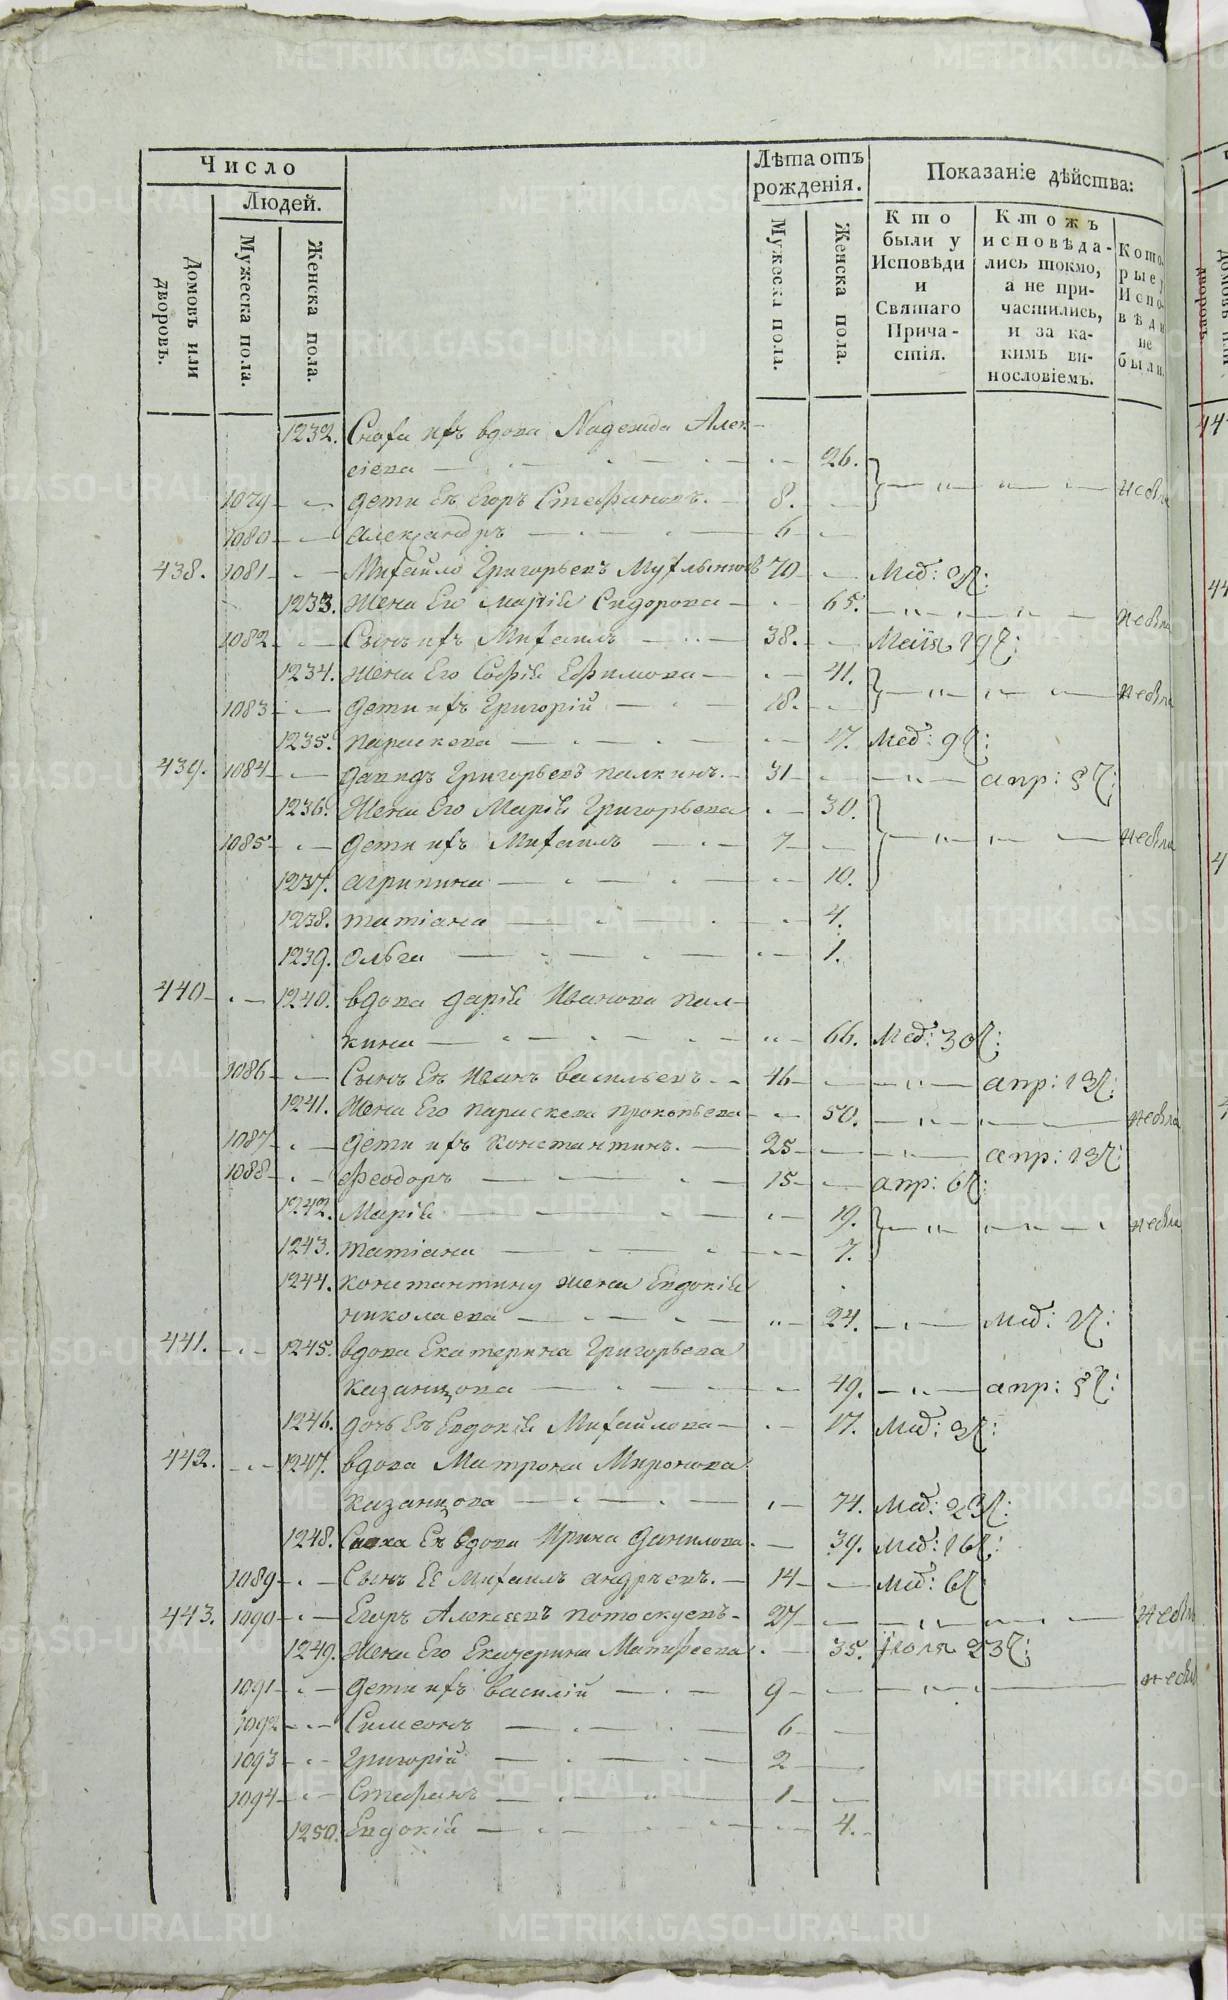 Число
Людей.
Домовъ или дворовъ.
Мужеска пола.
Женска пола.
Лѣта отъ рожденія.
Мужеска пола.
Женска пола.
Показаніе дѣйства:
Кто были у Исповѣди и Святаго Причастія.
Ктожъ исповѣдались токмо, а не причастились, и за какимъ винословіемъ.
Которые у Исповѣди не были.
1232. Сноха ихъ вдова Надежда Алек-
сіева — 26.
1079 — дети Ея Егоръ Стефановъ. 8. —
1080 — Александръ — 6 —
438. 1081 — Михайло Григорьевъ 70 —
1233. Жена Его Марія Сидорова — 65.
1082 — Сынъ ихъ Михаилъ — 38. — Маія 19
1234. Жена Его Софія Ефимова — 41.
1083 — дети ихъ Григорій — 18. —
1235. Параскева — 17.
439. 1084 — Давидъ Григорьевъ Палкинъ. — 31 — апр: 5
1236. Жена Его Марія Григорьева — 30.
1085 — дети ихъ Михаилъ — 7 —
1237. Агрипина — 10.
1238. Татіана — 4.
1239. Ольга — 1.
440 — 1240. вдова Дарія Иванова Пал-
кина — 66.
1086 — Сынъ Ея Иванъ Васильевъ. — 46 — апр: 13
1241. Жена Его Параскева Прокопьева — 50.
1087 — дети ихъ Константинъ. — 25 — апр: 13
1088 — Феодоръ — 15 — апр: 6
1242. Марія — 19.
1243. Татіана — 7.
1244. Константину жена Евдокія
Николаева — 24.
441. — 1245. вдова Екатерина Григорьева
Казанцова — 49. — апр: 5
1246. дочь Ея Евдокія Михайлова — 17.
442. — 1247. вдова Матрона Миронова
Казанцова — 74.
1248. Сноха Ея вдова Ирина Данилова. — 39.
1089 — Сынъ Ее Михаилъ Андреевъ. — 14 —
443. 1090 — Егоръ Алексеевъ Потоскуевъ — 27 —
1249. Жена Его Екатерина Матфеева — 35. Іюля 23
1091 — дети ихъ Василій — 9 —
1092 — Симеонъ — 6 —
1093 — Григорій — 2 —
1094 — Стефанъ — 1 —
1250. Евдокія — 4.
METRIKI.GASO-URAL.RU